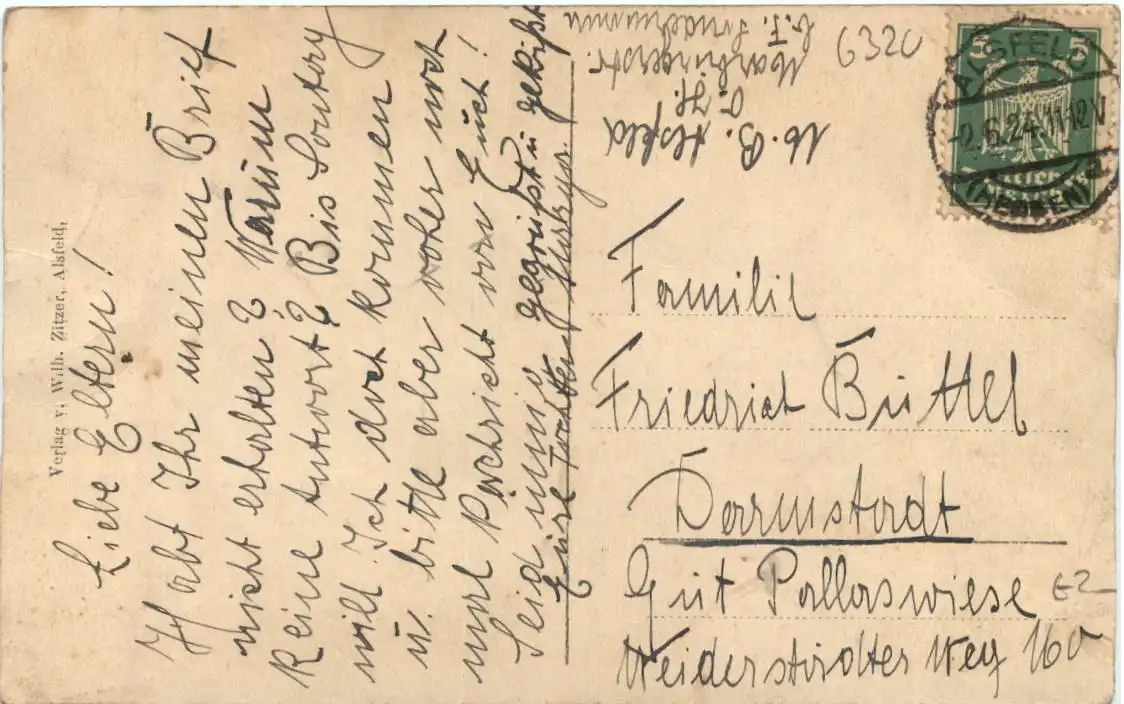 Verlag v. Wilh. Zitzer, Alsfeld.
Liebe Eltern!
Habt Ihr meinen Brief
nicht erhalten? Warum
keine Antwort? Bis Sontag
will Ich doch kommen
u. bitte aber vorher noch
mal Nachricht von Euch!
Seid innig gegrüßt u geküßt
Eure Tochter
M. B. Alsfeld
b. F.
6320
5 5
ALSFELD
-2.6.24.11-12V
(HESSEN)
Familie
Friedrich Büttel
Darmstadt
Gut Pallaswiese
Weiderstädter Weg 160